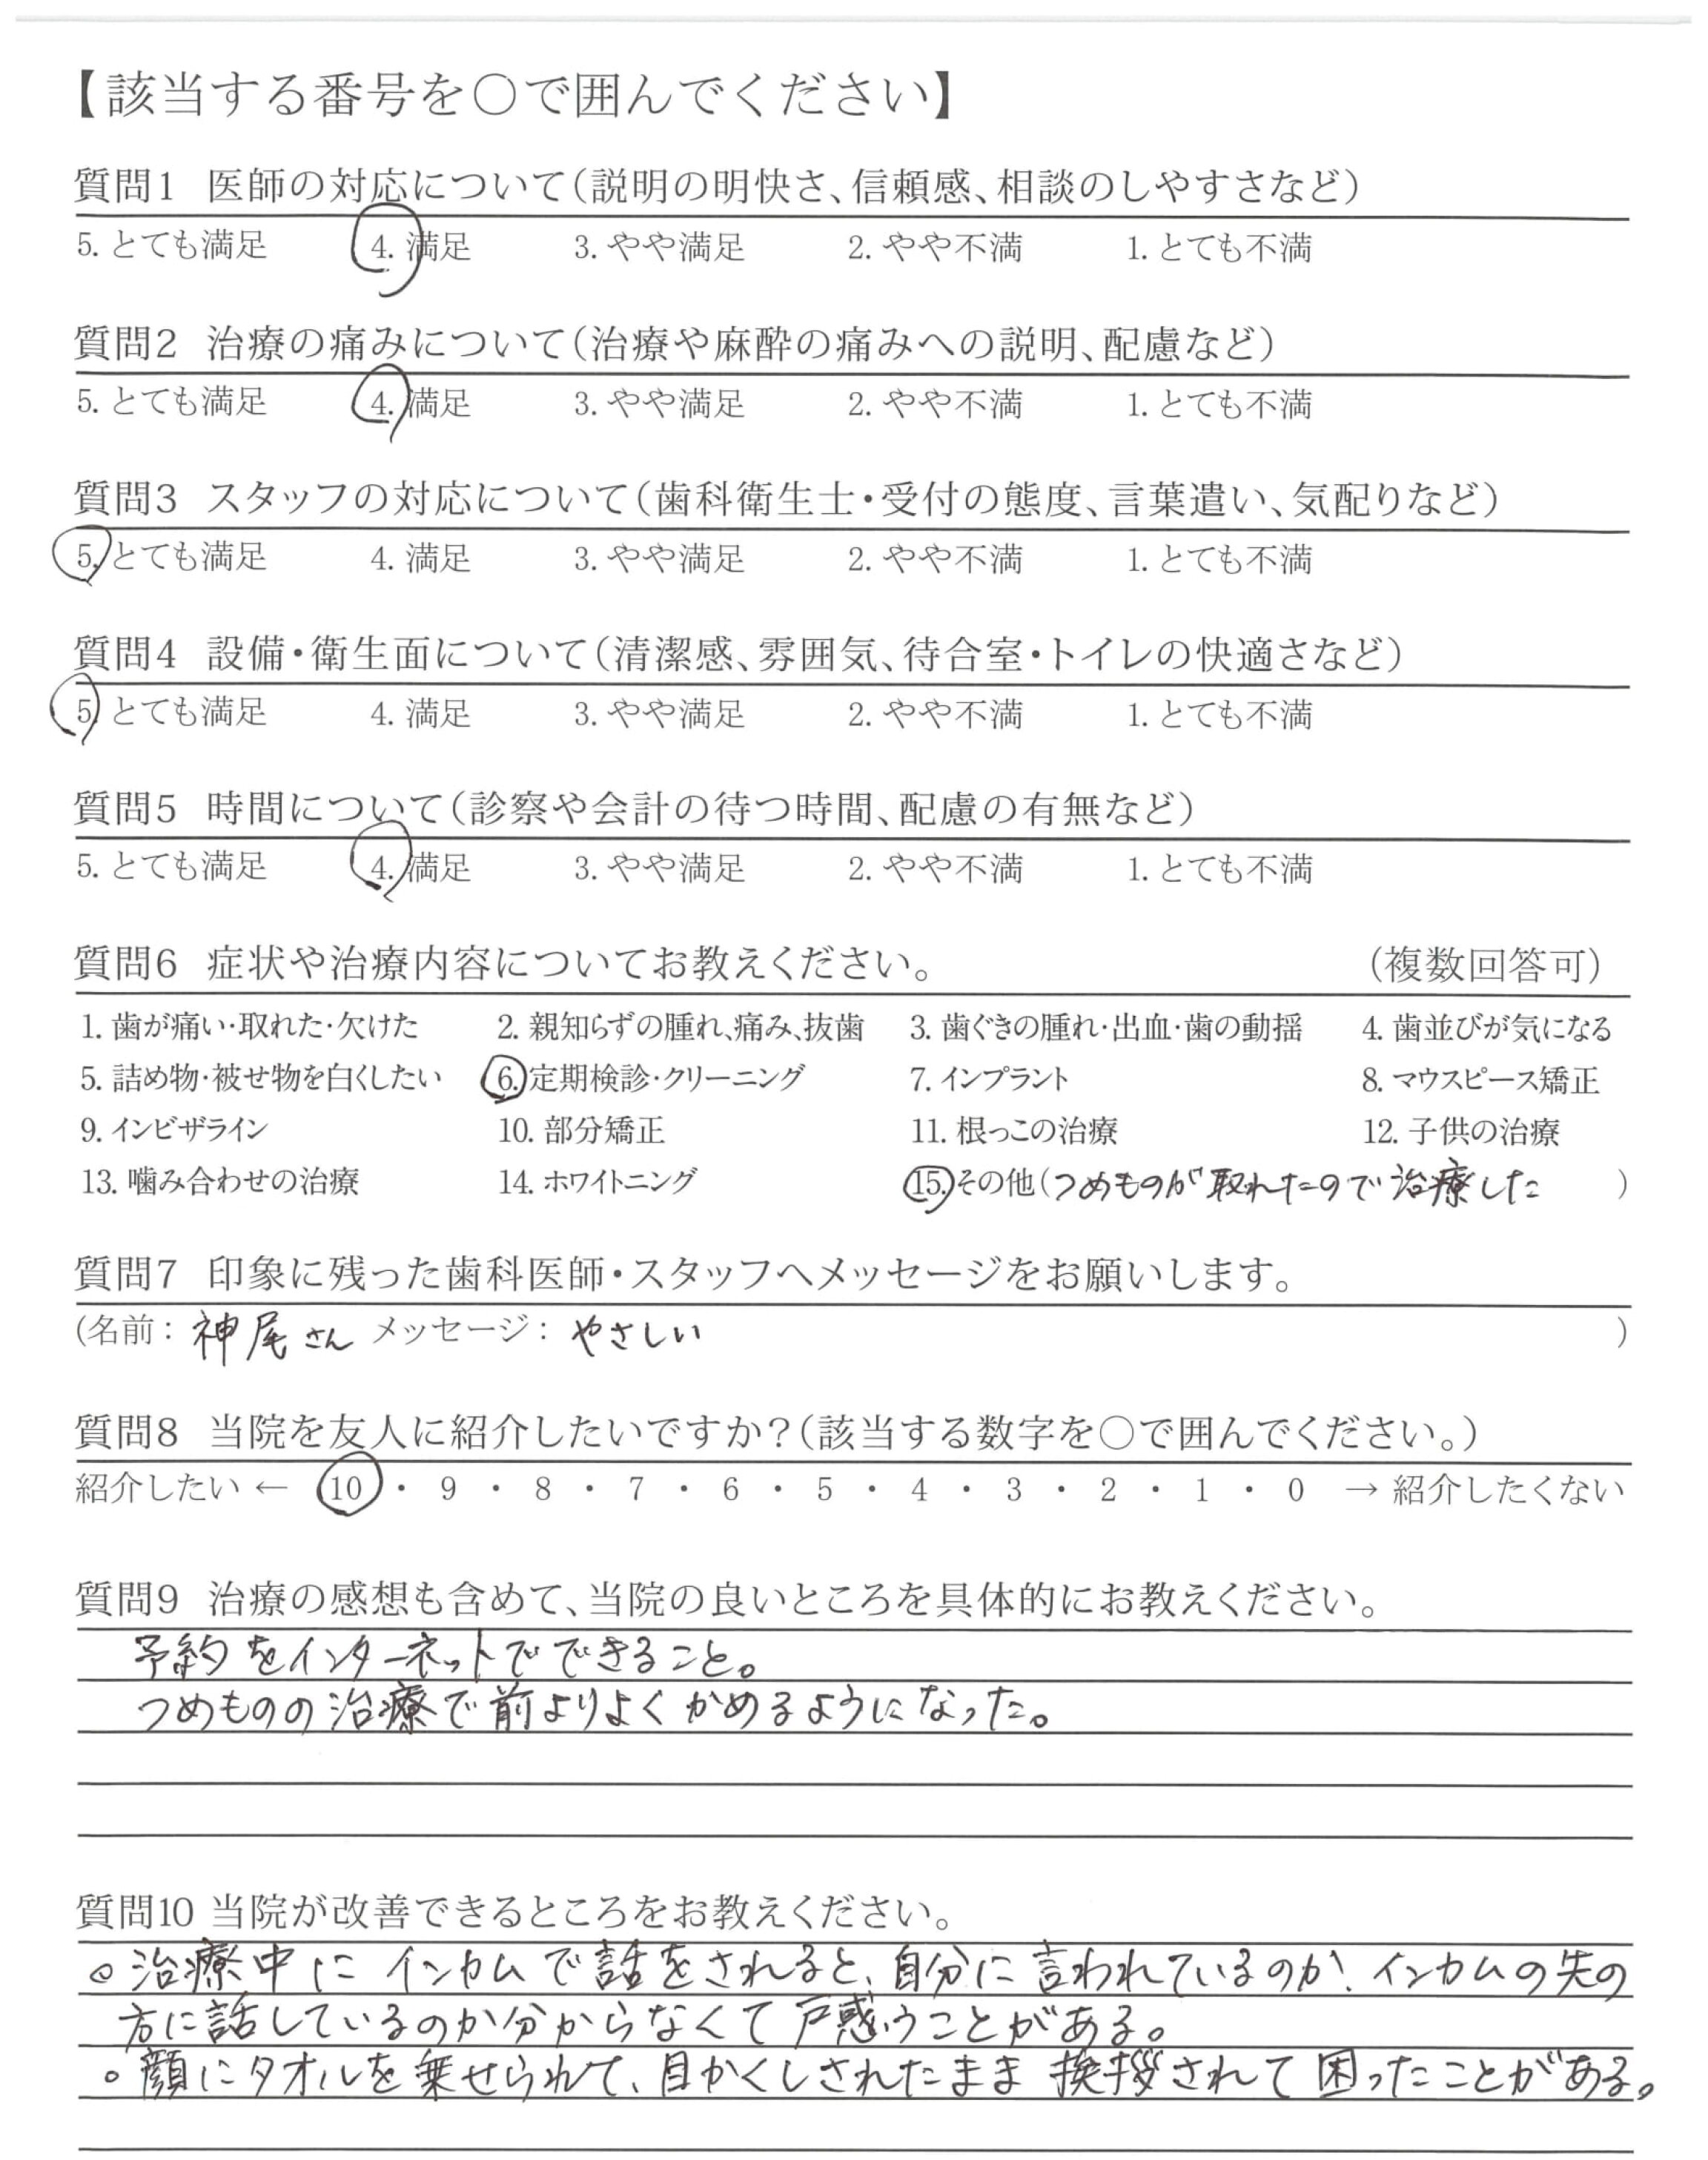 【該当する番号を○で囲んでください】
質問1 医師の対応について(説明の明快さ、信頼感、相談のしやすさなど)
5. とても満足 4. 満足 3. やや満足 2. やや不満 1. とても不満
質問2 治療の痛みについて(治療や麻酔の痛みへの説明、配慮など)
5. とても満足 4. 満足 3. やや満足 2. やや不満 1. とても不満
質問3 スタッフの対応について(歯科衛生士・受付の態度、言葉遣い、気配りなど)
5. とても満足 4. 満足 3. やや満足 2. やや不満 1. とても不満
質問4 設備・衛生面について(清潔感、雰囲気、待合室・トイレの快適さなど)
5. とても満足 4. 満足 3. やや満足 2. やや不満 1. とても不満
質問5 時間について(診察や会計の待つ時間、配慮の有無など)
5. とても満足 4. 満足 3. やや満足 2. やや不満 1. とても不満
質問6 症状や治療内容についてお教えください。 (複数回答可)
1. 歯が痛い・取れた・欠けた 2. 親知らずの腫れ、痛み、抜歯 3. 歯ぐきの腫れ・出血・歯の動揺 4. 歯並びが気になる
5. 詰め物・被せ物を白くしたい 6. 定期検診・クリーニング 7. インプラント 8. マウスピース矯正
9. インビザライン 10. 部分矯正 11. 根っこの治療 12. 子供の治療
13. 噛み合わせの治療 14. ホワイトニング 15. その他(つめものが取れたので治療した )
質問7 印象に残った歯科医師・スタッフへメッセージをお願いします。
(名前: 神尾さん メッセージ: やさしい )
質問8 当院を友人に紹介したいですか?(該当する数字を○で囲んでください。)
紹介したい ← 10 ・ 9 ・ 8 ・ 7 ・ 6 ・ 5 ・ 4 ・ 3 ・ 2 ・ 1 ・ 0 → 紹介したくない
質問9 治療の感想も含めて、当院の良いところを具体的にお教えください。
予約をインターネットでできること。
つめものの治療で前よりよくかめるようになった。
質問10 当院が改善できるところをお教えください。
○治療中にインカムで話をされると、自分に言われているのか、インカムの先の
方に話しているのか分からなくて戸惑うことがある。
○顔にタオルを乗せられて、目かくしされたまま挨拶されて困ったことがある。